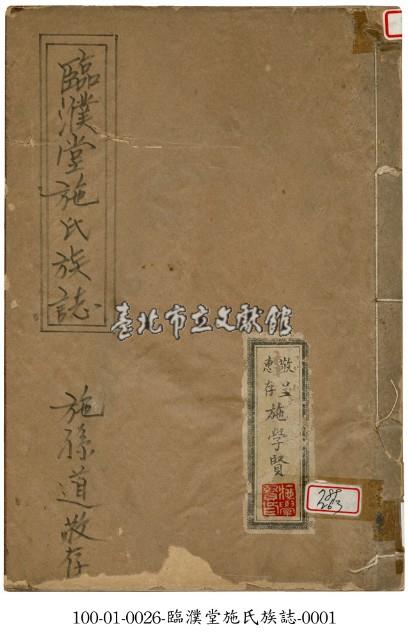 臨濮堂施氏族誌
施孫道敬存
臺北市立文獻館
敬呈
惠存
施學賢
100-01-0026-臨濮堂施氏族誌-0001